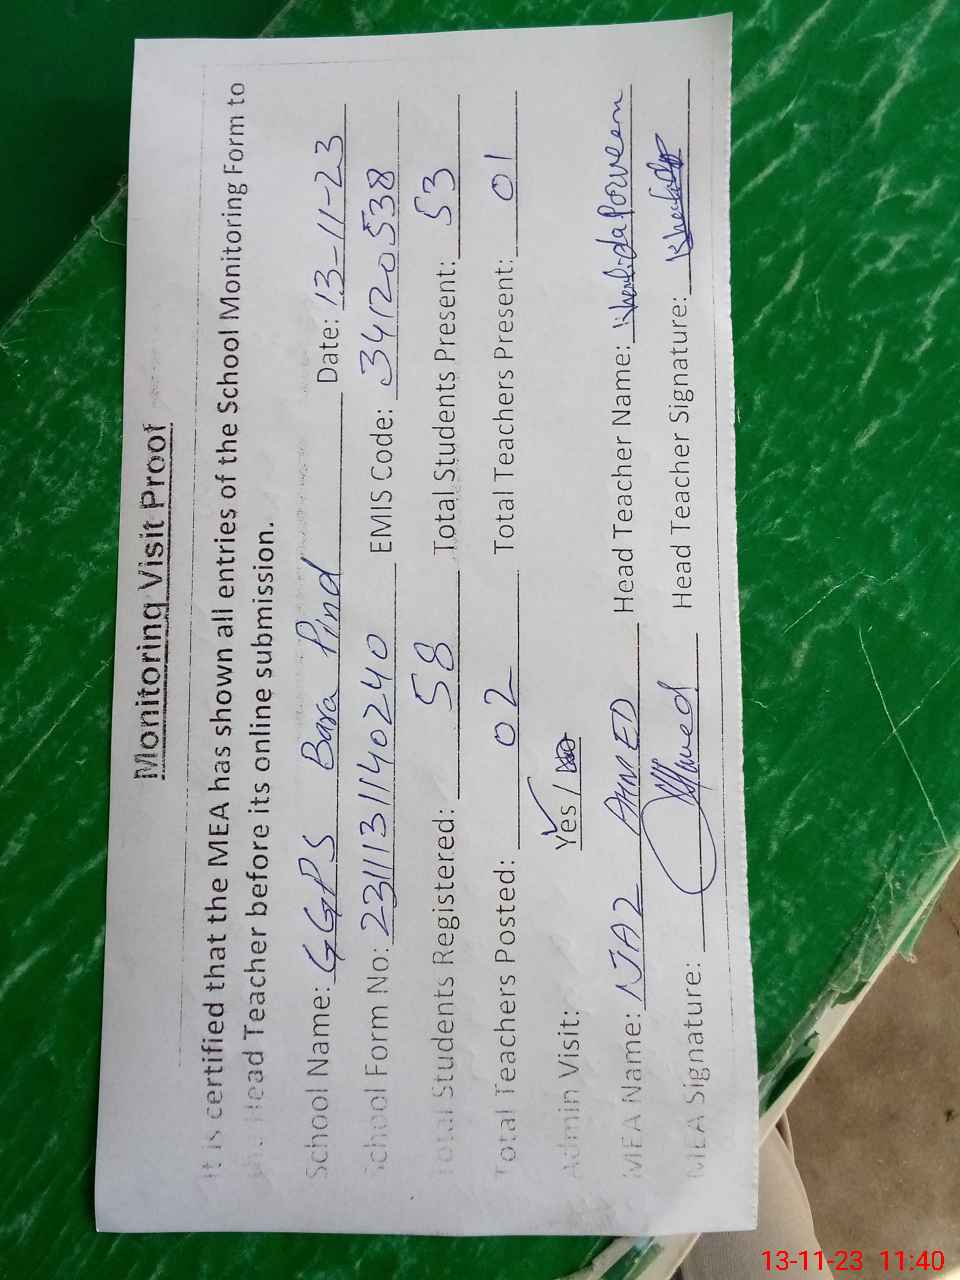 Monitoring Visit Proof
It is certified that the MEA has shown all entries of the School Monitoring Form to
the Head Teacher before its online submission.
School Name: GGPS Bara Pind Date: 13-11-23
School Form No: 23111311140240 EMIS Code: 34120538
Total Students Registered: 58 Total Students Present: 53
Total Teachers Posted: 02 Total Teachers Present: 01
Admin Visit: Yes / No
MEA Name: NJAZ AHMED Head Teacher Name: Khalida Parveen
MEA Signature: Head Teacher Signature:
13-11-23 11:40